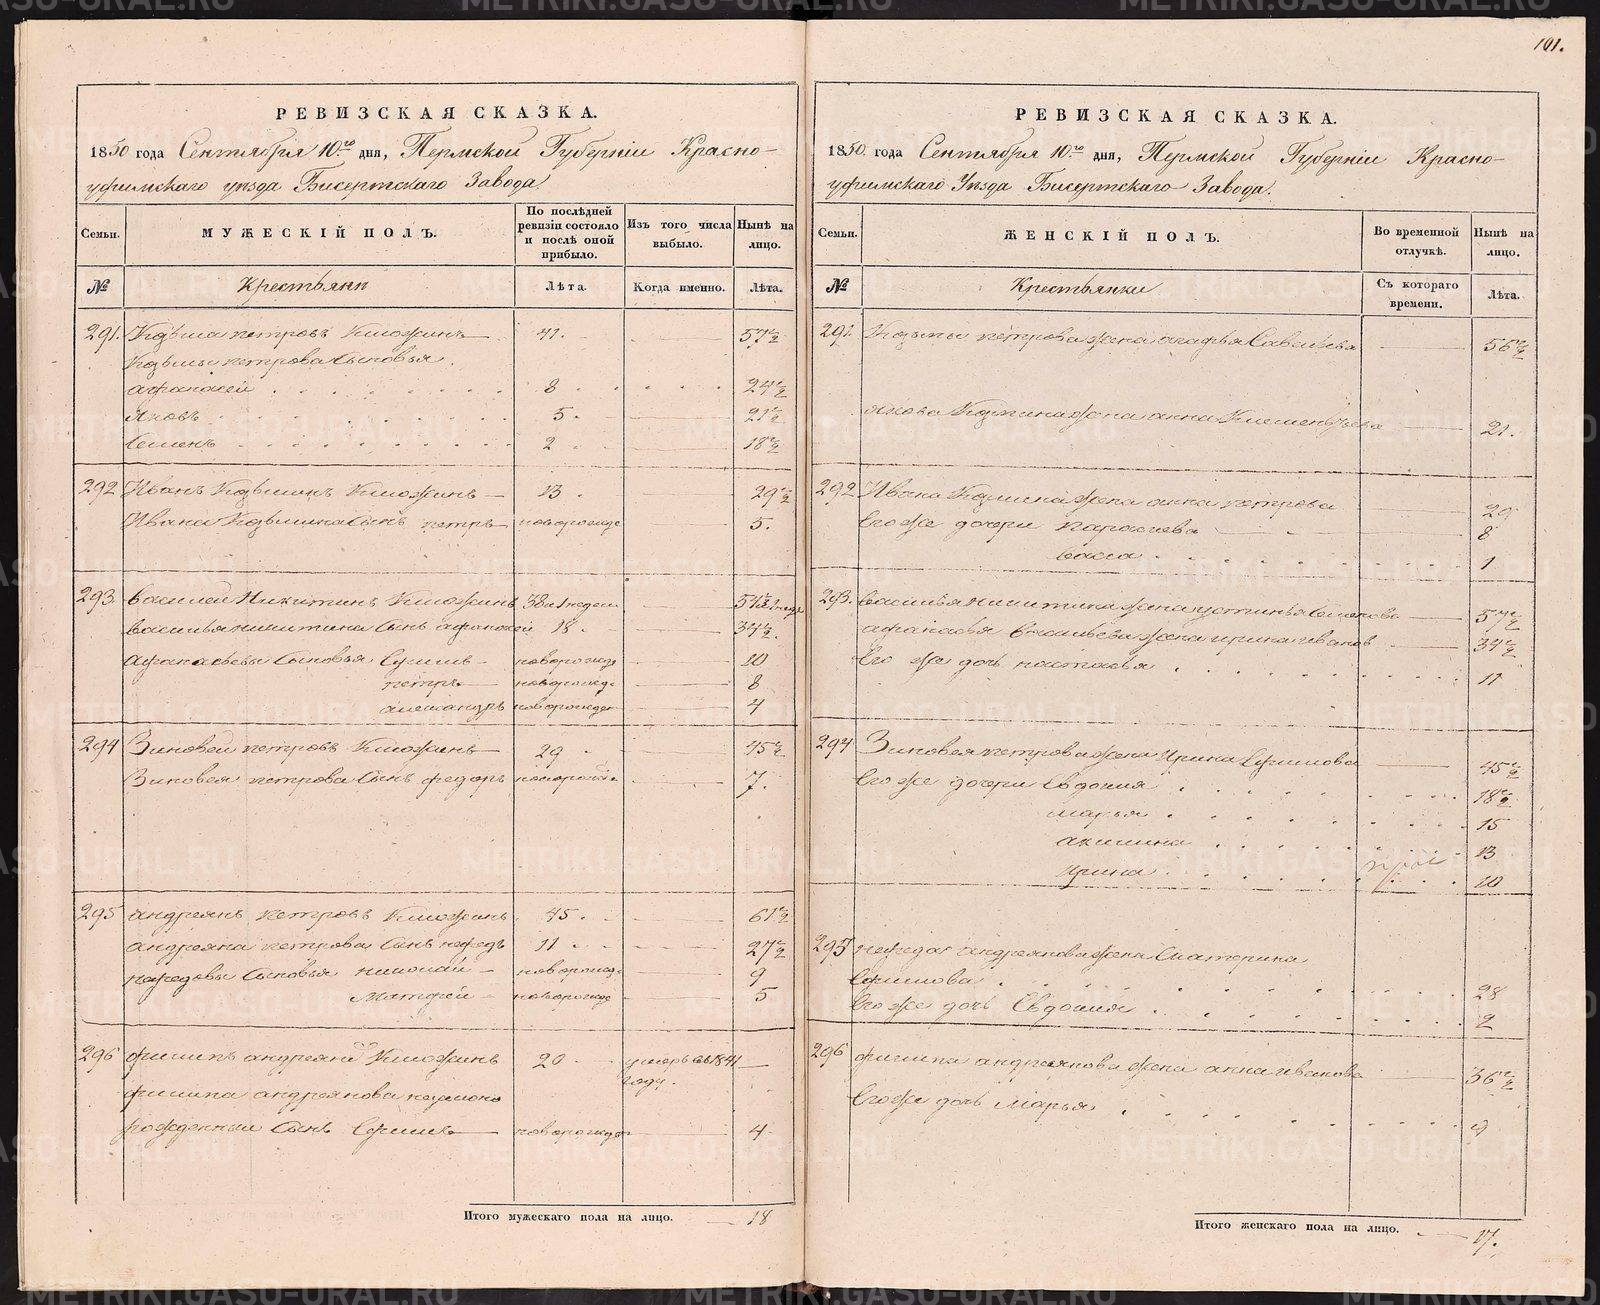 101.
РЕВИЗСКАЯ СКАЗКА.
1850 года Сентября 10го дня, Пермской Губерніи Красно-
уфимскаго уѣзда Бисертскаго Завода.
Семьи. МУЖЕСКІЙ ПОЛЪ. По послѣдней ревизіи состояло и послѣ оной прибыло. Изъ того числа выбыло. Нынѣ на лицо.
№ Крестьяни Лѣта. Когда именно. Лѣта.
291. Козьма петровъ 41. 57 1/2
Козьмы петрова Сыновья.
афанасей 8 24 1/2
Яковъ 5. 21 1/2
Семенъ 2 18 1/2
292 Иванъ Козьминъ 13. 29 1/2
Ивана Козьмина Сынъ петръ новорожде 5.
293. василей Никитинъ 38 и 1 недели 54 1/2
василья никитина Сынъ афанасей 18. 34 1/2
афанасьевы Сыновья Ефимъ новорожде 10
петръ новорожде 8
александръ новорожден 4
294 Зиновей петровъ 29 45 1/2
Зиновея петрова Сынъ федоръ новорожде 7.
295 андреянъ петровъ 45. 61 1/2
андреяна петрова Сынъ нефедъ 11 27 1/2
нефедовы Сыновья николай новорожде 9
Матфей новорожде 5
296 филипъ андреяновъ 20 умеръ въ 1841 году.
филипа андреянова незаконо
рожденный Сынъ Ефимъ новорожден 4
Итого мужескаго пола на лицо. 18
РЕВИЗСКАЯ СКАЗКА.
1850 года Сентября 10го дня, Пермской Губерніи Красно-
уфимскаго Уѣзда Бисертскаго Завода.
Семьи. ЖЕНСКІЙ ПОЛЪ. Во временной отлучкѣ. Нынѣ на лицо.
№ Крестьянки Съ котораго времени. Лѣта.
291. Козьмы петрова жена агафья Савельева 56 1/2
Якова Козмина жена анна Клементьева 21.
292 Ивана Козмина жена анна петрова 29
Егоже дочери парасковья 8
васса 1
293. василья никитина жена устинья Семенова 57 1/2
афанасья Васильева жена ирина иванов 34 1/2
Его же дочь настасья 11
294. Зиновея петрова жена Ирина Ефимова 45 1/2
Егоже дочери Евдокия 18 1/2
марья 15
акилина 13
Ирина 10
295 нефеда андреянова жена Екатерина
Ефимова 28
Егоже дочь Евдокия 2
296 филипа андреянова жена анна иванова 36 1/2
Егоже дочь Марья 9
Итого женскаго пола на лицо. 17.
METRIKI.GASO-URAL.RU